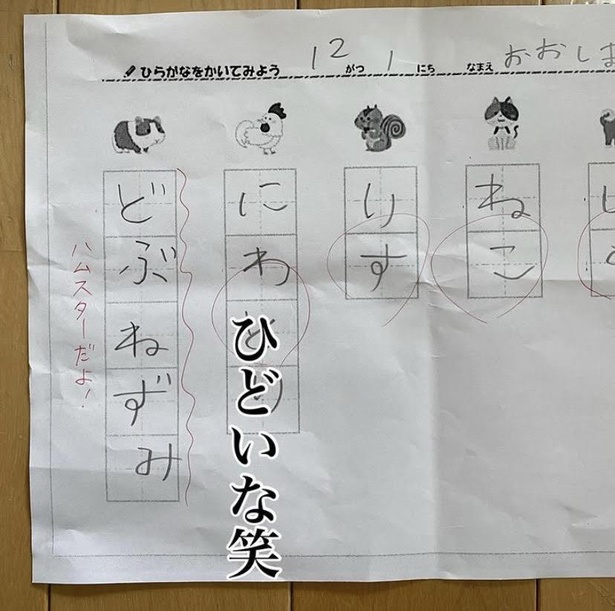 ひらがなをかいてみよう 12がつ 1にち なまえ おおしま
どぶねずみ
ハムスターだよ!
にわとり
りす
ねこ
ひどいな笑